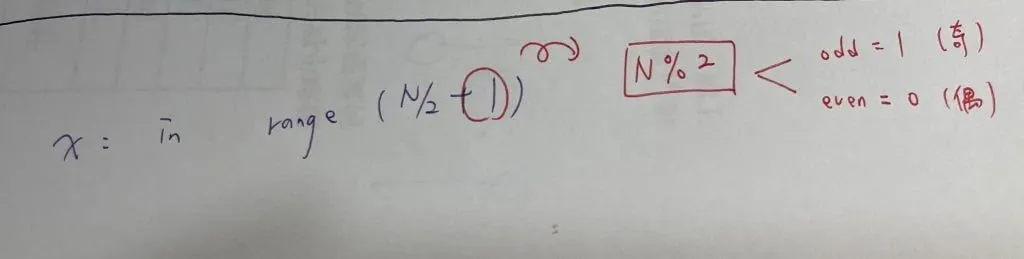 x = in range (N/2 - 1)
N%2
odd = 1 (奇)
even = 0 (偶)